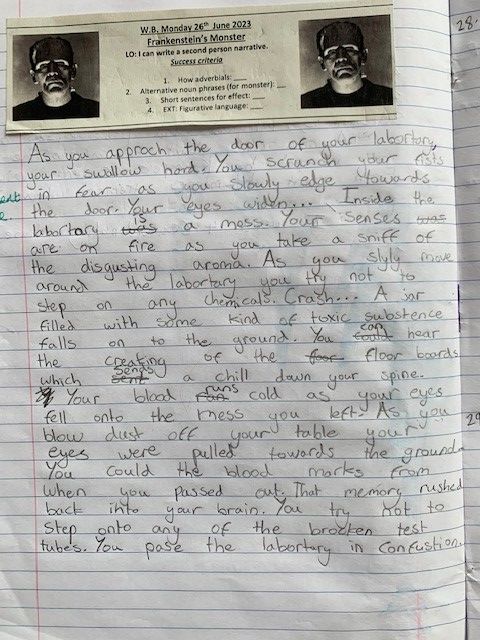 W.B. Monday 26th June 2023
Frankenstein's Monster
LO: I can write a second person narrative.
Success criteria
1. How adverbials: ____
2. Alternative noun phrases (for monster): __
3. Short sentences for effect: ___
4. EXT: Figurative language: ____
28.
As you approch the door of your labortary,
your swallow hard. You scranch your fists
in fear as you slowly edge towards
the door. Your eyes widen... Inside the
labortary was is a mess. Your senses was
are on fire as you take a sniff of
the disgusting aroma. As you slyly move
around the labortary you try not to
step on any chemicals. Crash... A jar
filled with some kind of toxic substence
falls on to the ground. You could can hear
the creating of the floor floor boards
which sent sends a chill down your spine.
Your blood ran runs cold as your eyes
fell onto the mess you left. As you
blow dust off your table your
eyes were pulled towards the ground.
You could the blood marks from
when you passed out. That memory rushed
back into your brain. You try not to
step onto any of the brocken test
tubes. You pase the labortary in confustion.